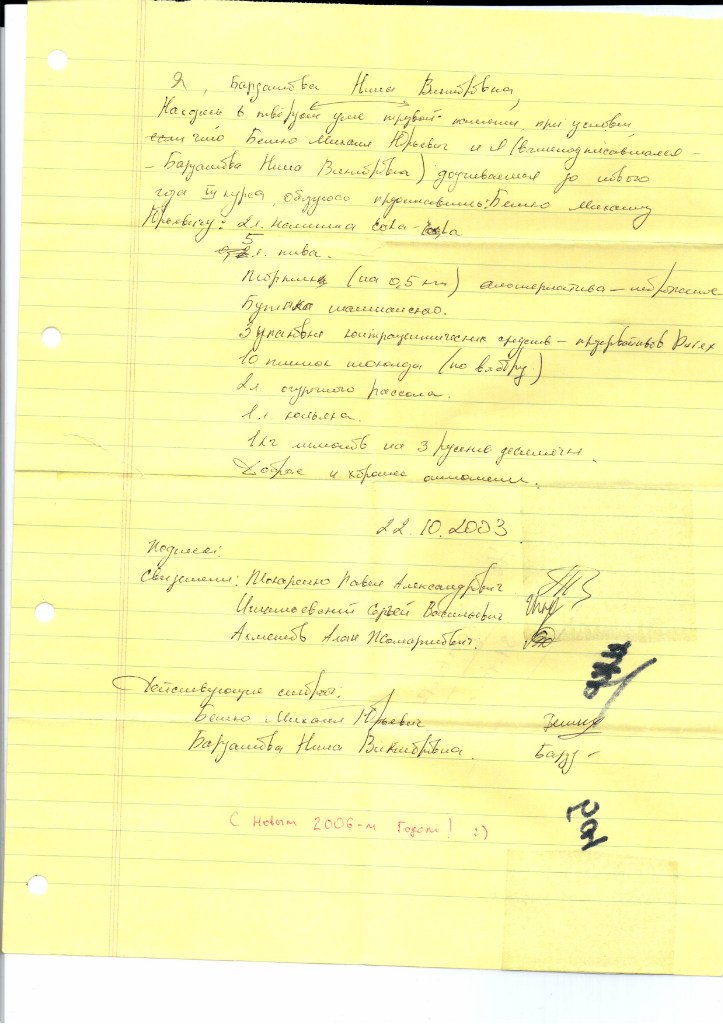 Я, Барзантова Нина Викторовна,
Находясь в твёрдом уме трезвой памяти при условии
если что Бешко Михаил Юрьевич и я (вышеподписавшаяся -
- Барзантова Нина Викторовна) доучиваемся до нового
года IV курса, обязуюсь предоставить: Бешко Михаилу
Юрьевичу: 2 л. напитка Coca-Cola
5 л. пива.
(на 0,5 кг) альтернатива –
Бутылка шампанского.
3 упаковки контрацептических средств – презервативов Durex
10 плиток шоколада (по выбору)
2 л огуречного рассола.
1 л. коньяка.
1 кг на 3 русские десятични.
Доброе и хорошее отношение.
22.10.2003
Подписи:
Свидетели: Токаренко Павел Александрович
Сергей Васильевич
Ахметов Алан
Действующие стороны:
Бешко Михаил Юрьевич
Барзантова Нина Викторовна. Барз -
С Новым 2006-м Годом! :)